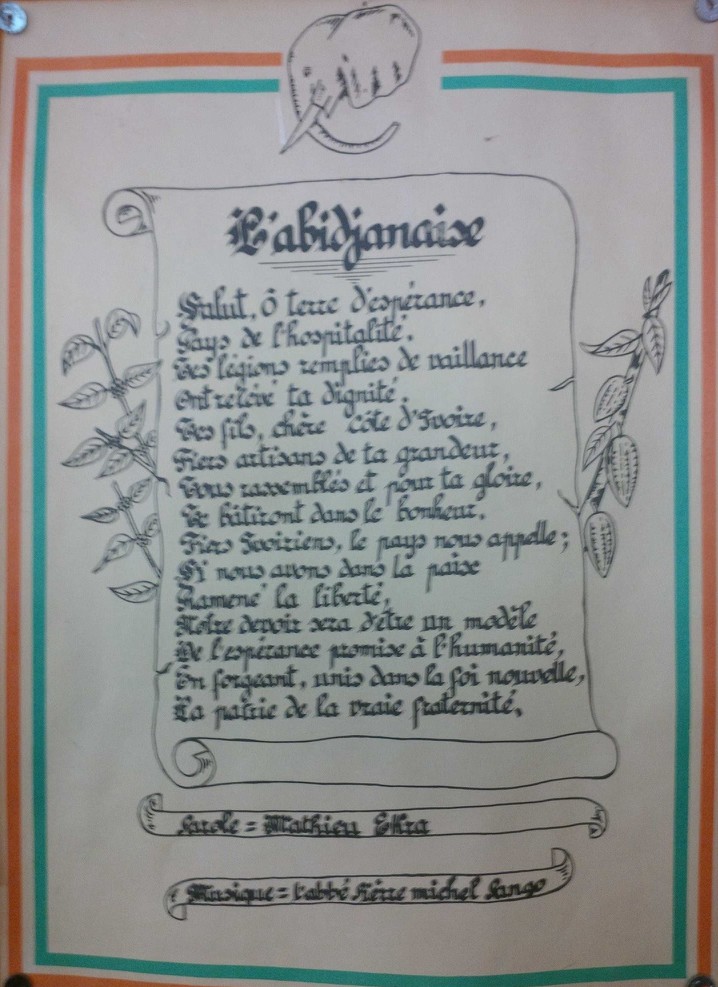 L'abidjanaise
Salut, ô terre d'espérance,
Pays de l'hospitalité.
Tes légions remplies de vaillance
ont relevé ta dignité.
Tes fils, chère Côte d'Ivoire,
Fiers artisans de ta grandeur,
Tous rassemblés et pour ta gloire,
Te bâtiront dans le bonheur.
Fiers Ivoiriens, le pays nous appelle;
Si nous avons dans la paix
Ramené la liberté,
Notre devoir sera d'être un modèle
De l'espérance promise à l'humanité,
En forgeant, unis dans la foi nouvelle,
La patrie de la vraie fraternité,
Parole = Mathieu Ekra
Musique = l'abbé Pierre michel Pango